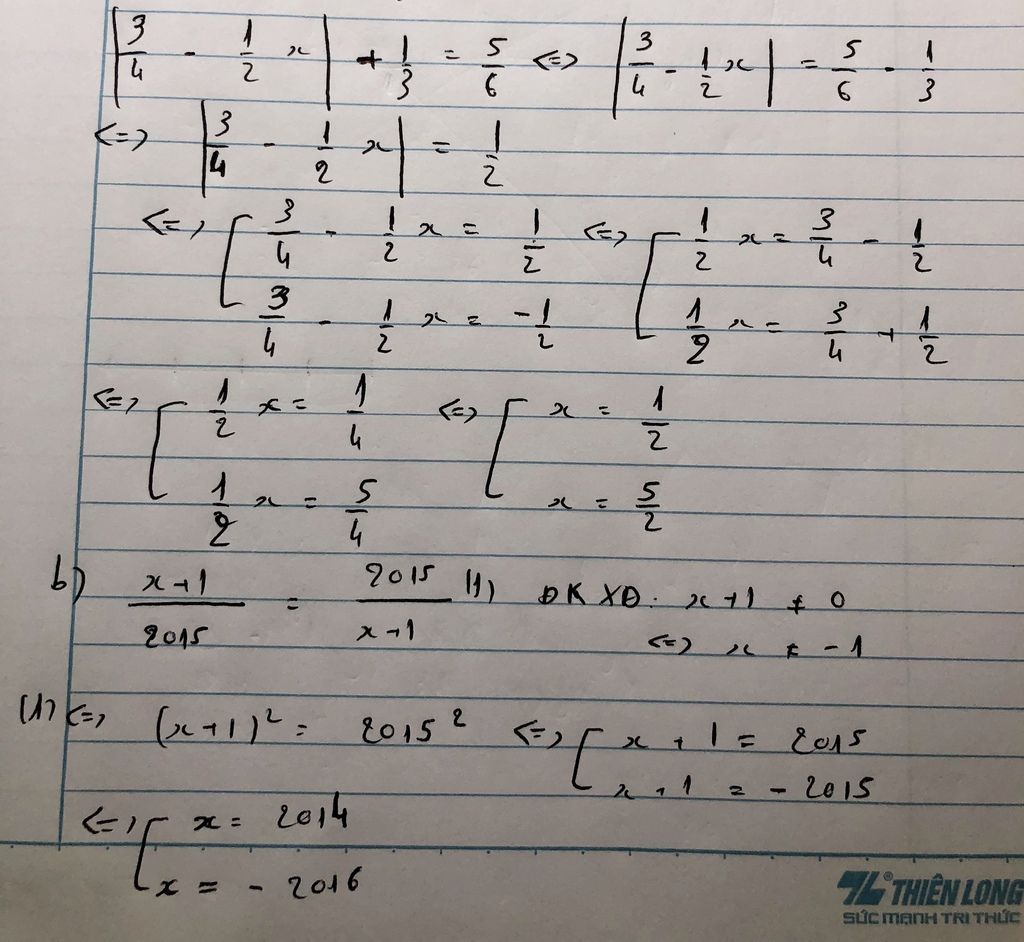 |3/4 - 1/2 x| + 1/3 = 5/6 <=> |3/4 - 1/2 x| = 5/6 - 1/3
<=> |3/4 - 1/2 x| = 1/2
<=> [ 3/4 - 1/2 x = 1/2 <=> [ 1/2 x = 3/4 - 1/2
3/4 - 1/2 x = -1/2 1/2 x = 3/4 + 1/2
<=> [ 1/2 x = 1/4 <=> [ x = 1/2
1/2 x = 5/4 x = 5/2
b) x+1/2015 = 2015/x+1 (1) ĐKXĐ: x+1 ≠ 0
<=> x ≠ -1
(1) <=> (x+1)² = 2015² <=> [ x + 1 = 2015
x + 1 = - 2015
<=> [ x = 2014
x = - 2016
TL® THIÊN LONG
SỨC MẠNH TRI THỨC